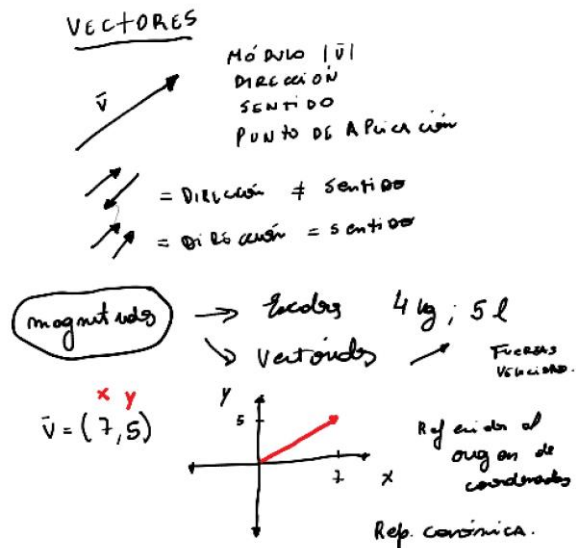 VECTORES
MÓDULO |v̄|
DIRECCIÓN
SENTIDO
PUNTO DE APLICACIÓN
v̄
= DIRECCIÓN ≠ SENTIDO
= DIRECCIÓN = SENTIDO
magnitudes → Escalares 4 kg ; 5 l
↘ Vectoriales
FUERZAS
VELOCIDAD.
x y
v̄ = (7,5)
y
5
7 x
Referidos al
origen de
coordenadas
Rep. canónica.